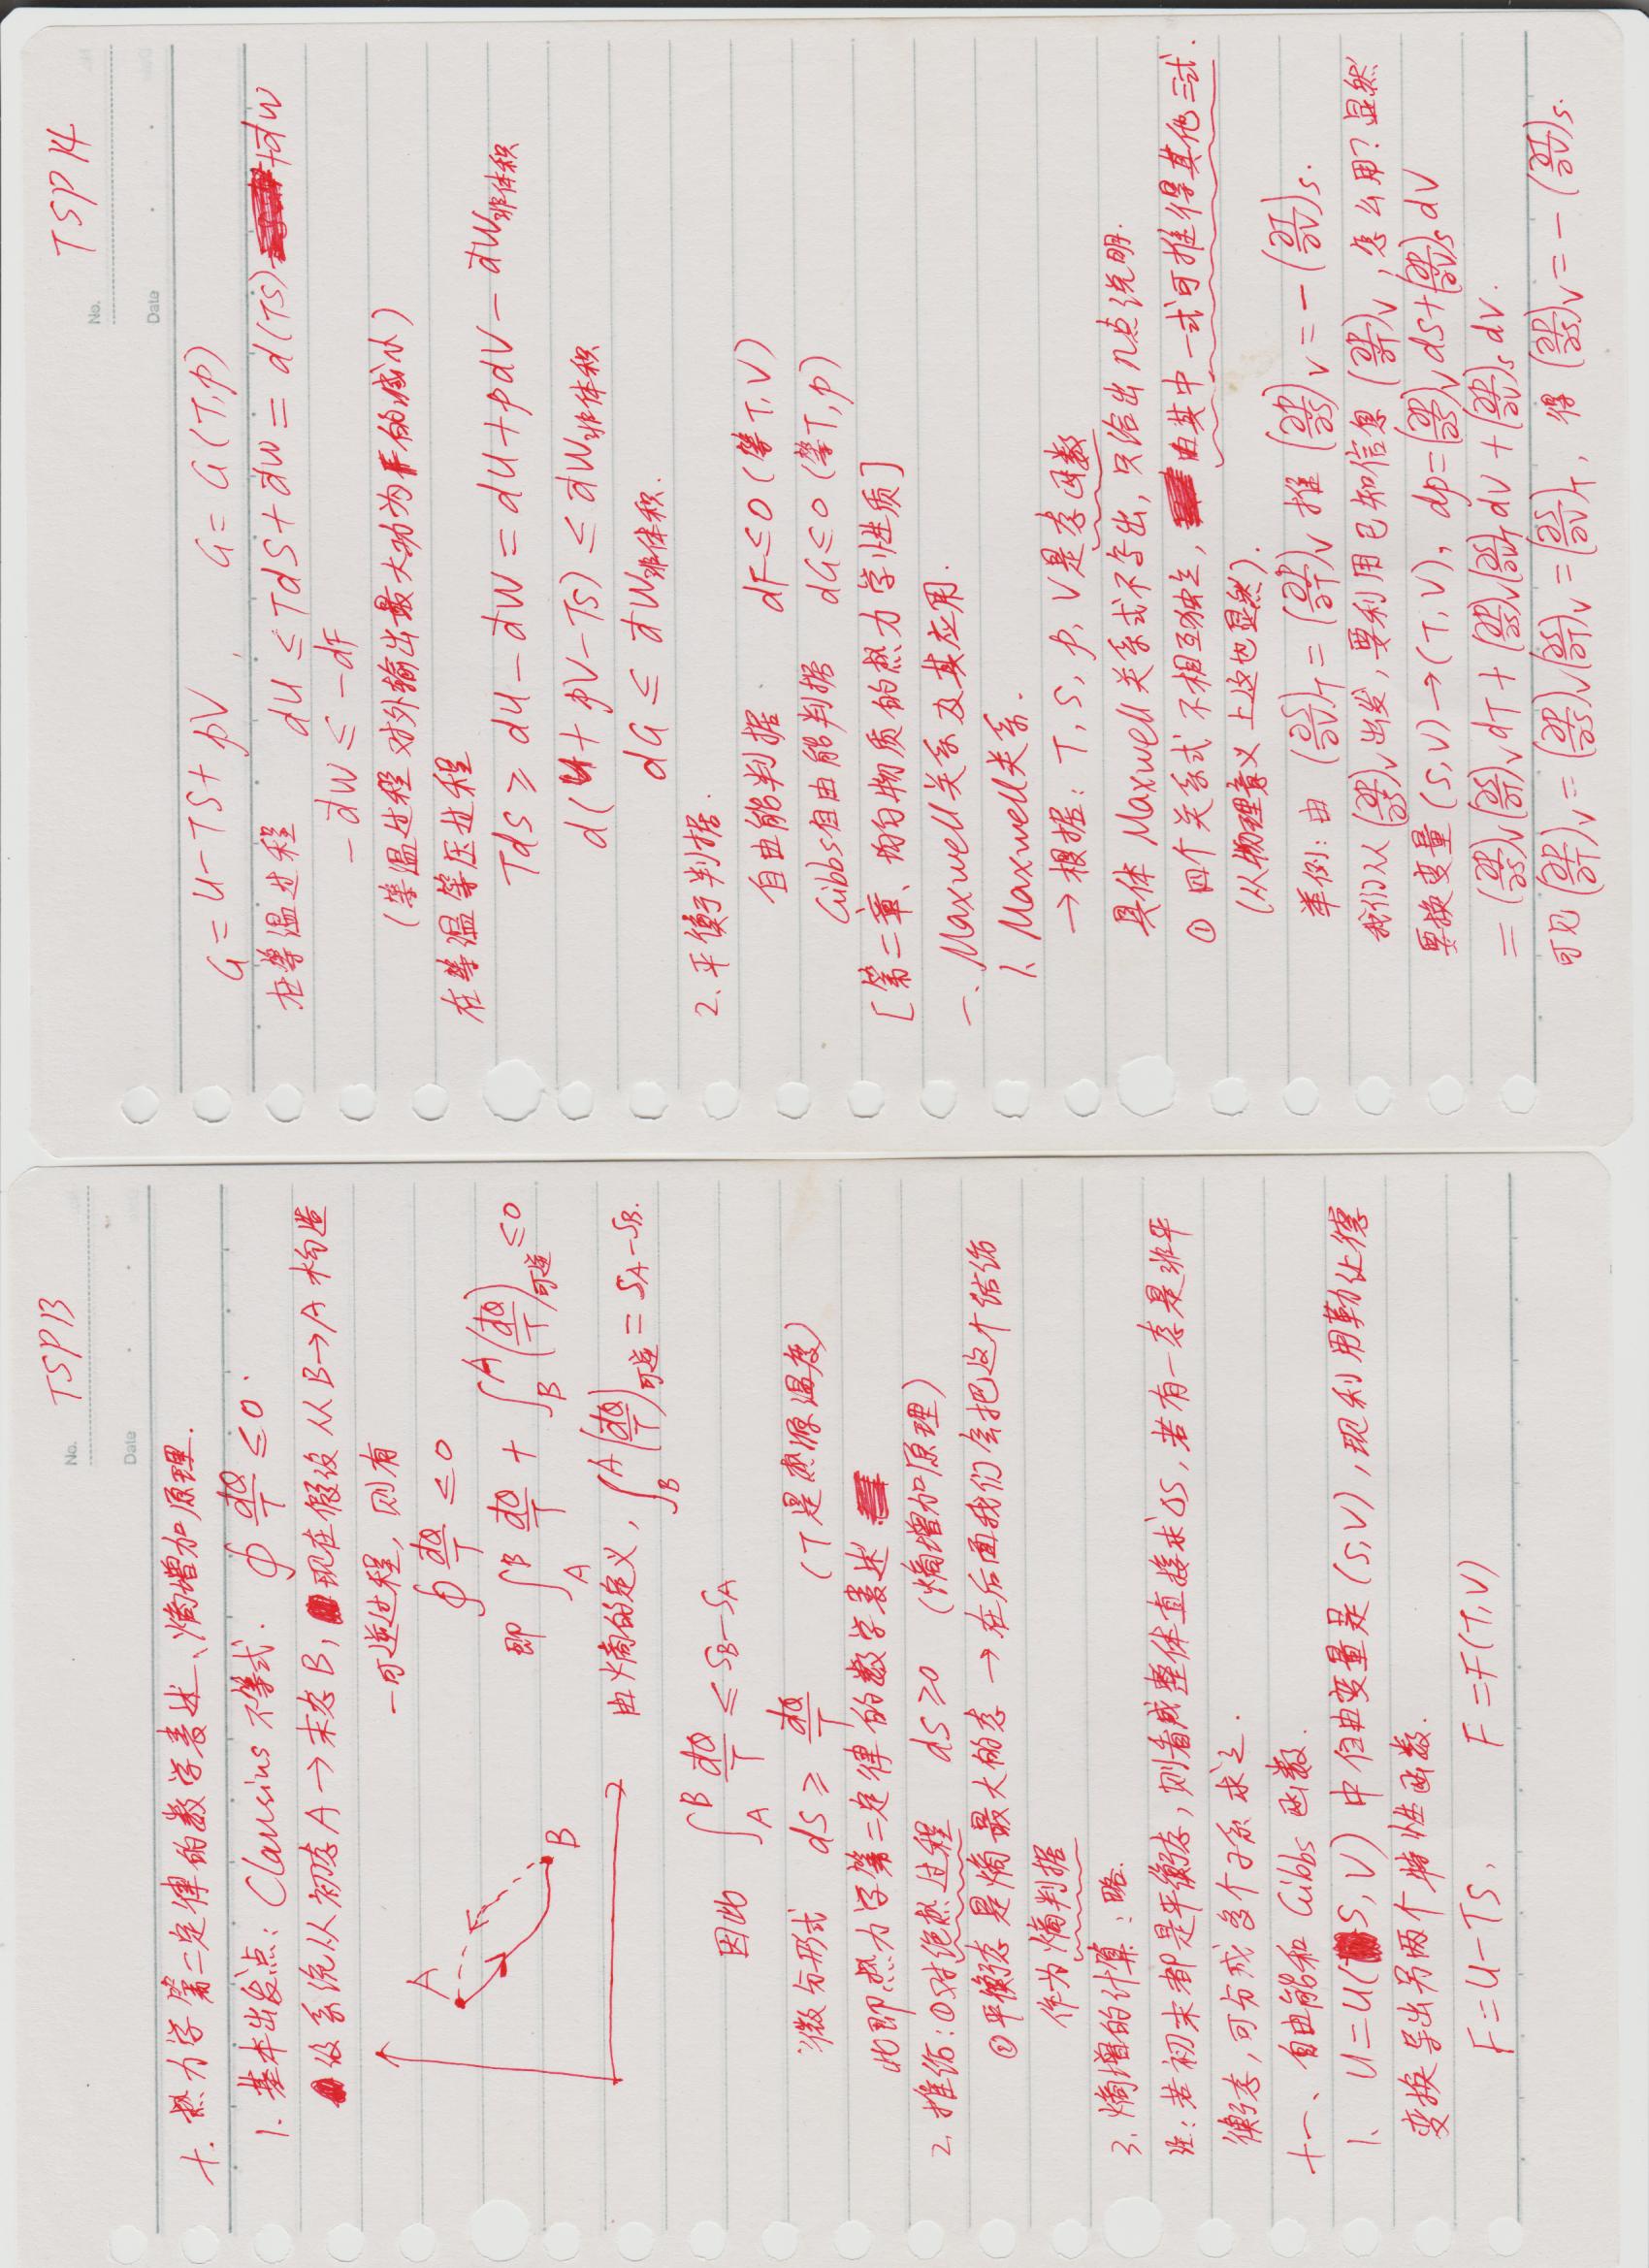 No. TSP13
Date
十. 热力学第二定律的数学表述、熵增加原理.
1. 基本出发点: Clausius 不等式. ∮ đQ/T ≤ 0.
设系统从初态A → 末态B, 现在假设从B→A 构造
一可逆过程, 则有
∮ đQ/T ≤ 0
A
即 ∫_A^B đQ/T + ∫_B^A (đQ/T)_可逆 ≤ 0
B
由熵的定义, ∫_B^A (đQ/T)_可逆 = S_A - S_B.
因此 ∫_A^B đQ/T ≤ S_B - S_A
微分形式 dS ≥ đQ/T (T是热源温度)
此即热力学第二定律的数学表述
2. 推论: ①对绝热过程 dS ≥ 0 (熵增加原理)
②平衡态是熵最大的态 → 在后面我们会把这个结论
作为熵判据
3. 熵增的计算: 略.
注: 若初末都是平衡态, 则看成整体直接求ΔS, 若有一态是非平
衡态, 可分成多个子系求之.
十一、自由能和 Gibbs 函数.
1. U = U(S, V) 中自由变量是 (S, V), 现利用勒让德
变换导出另两个特性函数.
F = U - TS, F = F(T, V)
No. TSP14
Date
G = U - TS + pV, G = G(T, p)
在等温过程 dU ≤ TdS + đW = d(TS) + đW
-đW ≤ -dF
(等温过程对外输出最大功为F的减小)
在等温等压过程
TdS ≥ dU - đW = dU + pdV - đW_非体积
d(U + pV - TS) ≤ đW_非体积
dG ≤ đW_非体积.
2. 平衡判据.
自由能判据 dF ≤ 0 (等T, V)
Gibbs自由能判据 dG ≤ 0 (等T, p)
[第二章、均匀物质的热力学性质]
一、Maxwell关系及其应用.
1. Maxwell关系.
→ 根据: T, S, p, V是态函数
具体 Maxwell 关系式不写出, 只给出几点说明.
① 四个关系式不相互独立, 由其中一式可推得其他三式.
(从物理意义上这也显然).
举例: 由 (∂S/∂V)_T = (∂p/∂T)_V 推 (∂p/∂S)_V = -(∂T/∂V)_S.
我们从 (∂p/∂S)_V 出发, 要利用已知信息 (∂p/∂T)_V, 怎么用? 显然
要换变量 (S, V) → (T, V), dp = (∂p/∂S)_V dS + (∂p/∂V)_S dV
= (∂p/∂S)_V (∂S/∂T)_V dT + (∂p/∂S)_V (∂S/∂V)_T dV + (∂p/∂V)_S dV.
可见 (∂p/∂T)_V = (∂p/∂S)_V (∂S/∂T)_V = (∂S/∂V)_T, 得 (∂p/∂S)_V = -(∂T/∂V)_S.